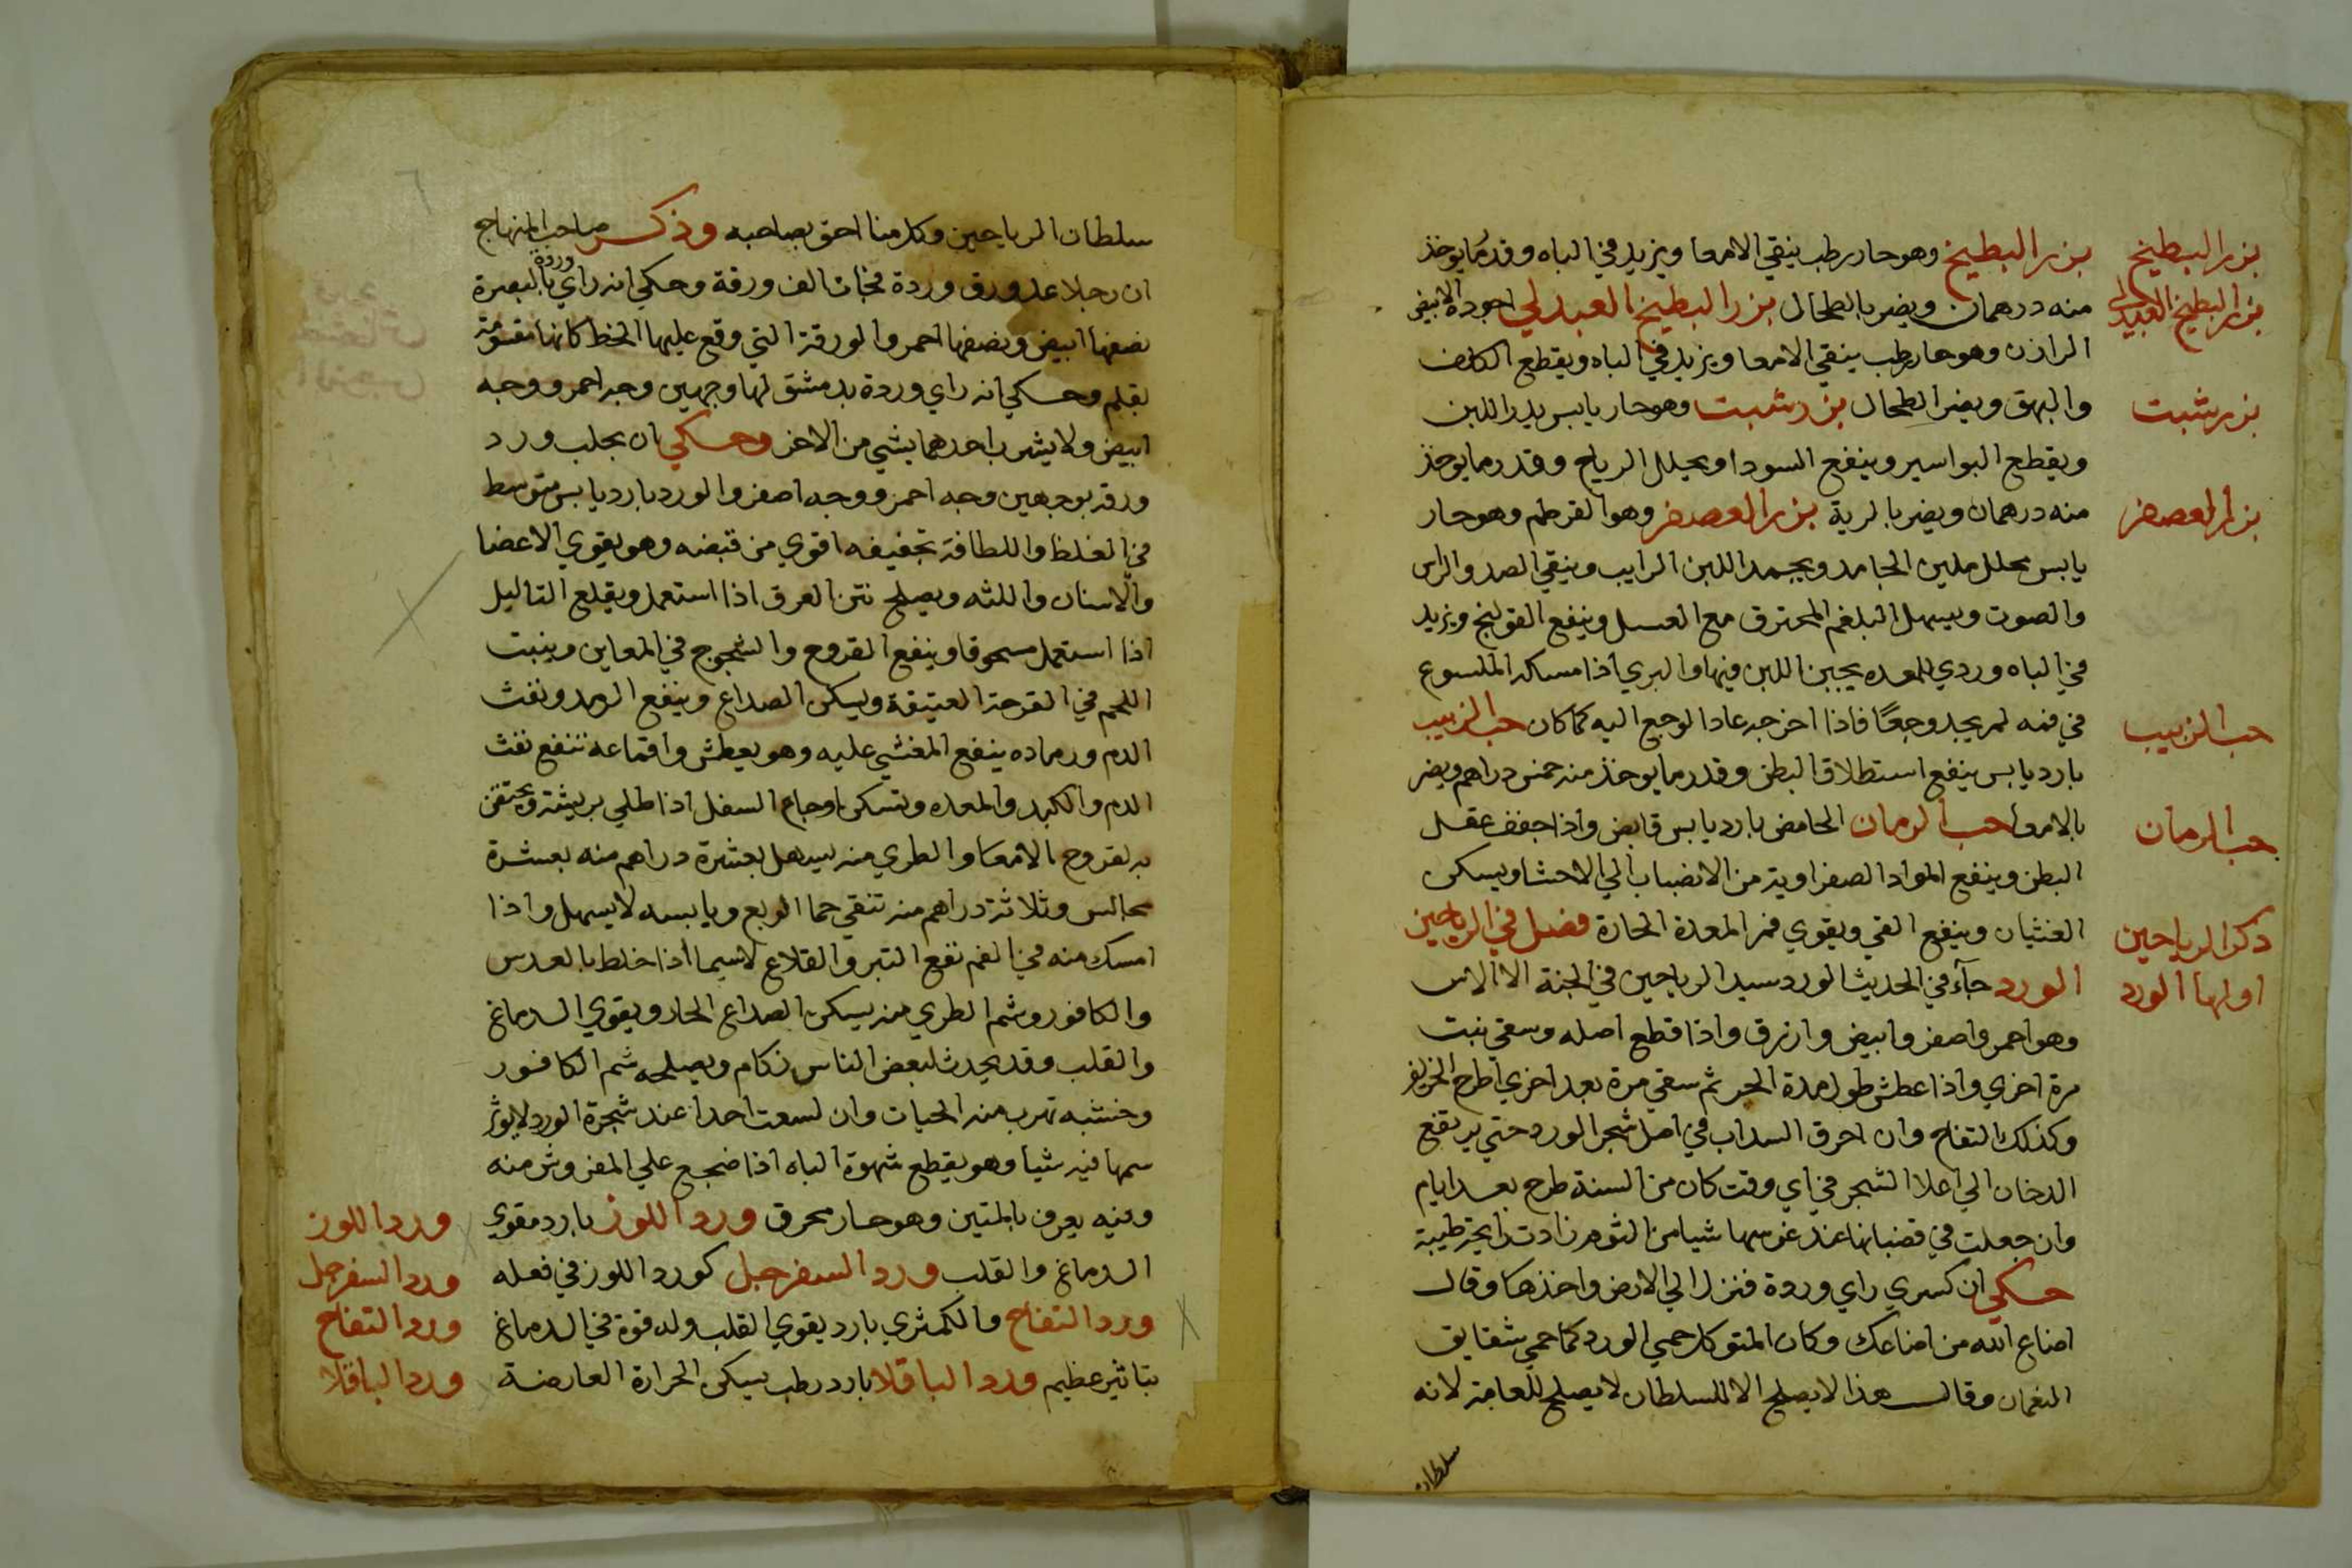 بزر البطيخ
بزر البطيخ العبدلي
بزر شبت
بزر العصفر
حب الزبيب
حب الرمان
ذكر الرياحين
اولها الورد
بزر البطيخ وهو حار رطب ينقي الامعا ويزيد في الباه وقدر ما يوخذ
منه درهمان ويضر بالطحال بزر البطيخ العبدلي اجوده الابيض
الرازن وهو حار رطب ينقي الامعا ويزيد في الباه ويقطع الكلف
والبهق ويضر الطحال بزر شبت وهو حار يابس يدر اللبن
ويقطع البواسير وينفع السودا ويحلل الرياح وقدر ما يوخذ
منه درهمان ويضر بالرية بزر العصفر وهو القرطم وهو حار
يابس محلل ملين الجامد ويجمد اللبن الرايب وينقي الصدر والراس
والصوت ويسهل البلغم المحترق مع العسل وينفع القولنج ويزيد
في الباه وردي للمعده يجبن اللبن فيها والبري اذا مسكه الملسوع
في فمه لم يجد وجعًا فاذا اخرجه عاد الوجع اليه كما كان حب الزبيب
بارد يابس ينفع استطلاق البطن وقدر ما يوخذ منه خمس دراهم ويضر
بالامعا حب الرمان الحامض بارد يابس قابض واذا جفف عقل
البطن وينفع المواد الصفراوية من الانصباب الي الاحشا ويسكن
الغثيان وينفع القي ويقوي فم المعدة الحارة فصل في الرياحين
الورد جآء في الحديث الورد سيد الرياحين في الجنة الا الاس
وهو احمر واصفر وابيض وازرق واذا قطع اصله وسقي نبت
مرة اخري واذا عطش طول مدة الحر ثم سقي مرة بعد اخري اطرح الخريف
وكذلك التفاح وان احرق السداب في اصل شجر الورد حتي يرتفع
الدخان الي اعلا الشجر في اي وقت كان من السنة طرح بعد ايام
وان جعلت في قضبانها عند غرسها شيا من الثوم زادت رايحته طيبة
حكي ان كسري راي وردة فنزل الي الارض واخذها وقال
اضاع الله من اضاعك وكان المتوكل حمي الورد كما حمي شقايق
النعمان وقال هذا لا يصلح الا للسلطان لا يصلح للعامة لانه
سلطان
سلطان الرياحين وكل منا احق بصاحبه وذكر صاحب المنهاج
ان رجلا عد ورق وردة فجات الف ورقة وحكي انه راي بالبصرة وردة
نصفها ابيض ونصفها احمر والورقة التي وقع عليها الخط كانها مقسومة
بقلم وحكي انه راي وردة بدمشق لها وجهين وجه احمر ووجه
ابيض ولا يشرب احدهما بشي من الاخر وحكي ان بحلب ورد
ورقه بوجهين وجه احمر ووجه اصفر والورد بارد يابس متوسط
في الغلظ واللطافة تجفيفه اقوي من قبضه وهو يقوي الاعضا
والاسنان واللثه ويصلح نتن العرق اذا استعمل ويقلع التاليل
اذا استعمل مسحوقا وينفع القروح والشجوج في المعاين وينبت
اللحم في القرحة العتيقة ويسكن الصداع وينفع الرمد ونفث
الدم ورماده ينفع المغشي عليه وهو يعطش واقماعه تنفع نفث
الدم والكبد والمعده وتسكن اوجاع السفل اذا طلي بريشة ويحتقن
به لقروح الامعا والطري منه يسهل بعشرة دراهم منه بعشرة
مجالس وثلاثة دراهم منه تنقي حما الربع ويابسه لا يسهل واذا
امسك منه في الفم نفع التبر والقلاع لا سيما اذا خلط بالعدس
والكافور وشم الطري منه يسكن الصداع الحار ويقوي الدماغ
والقلب وقد يحدث لبعض الناس زكام ويصلحه شم الكافور
وخشبه تهرب منه الحيات وان لسعت احدا عند شجرة الورد لا يوثر
سمها فيه شيا وهو يقطع شهوة الباه اذا ضجع علي المفروش منه
وفيه يعرف بالمتين وهو حار محرق ورد اللوز بارد مقوي
الدماغ والقلب ورد السفرجل كورد اللوز في فعله
ورد التفاح والكمثري بارد يقوي القلب وله قوة في الدماغ
بتاثير عظيم ورد الباقلا بارد رطب يسكن الحرارة العارضة
ورد اللوز
ورد السفرجل
ورد التفاح
ورد الباقلا